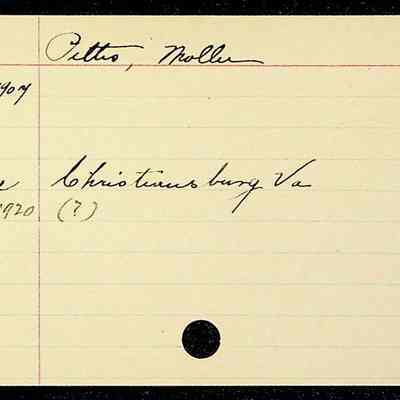 Pettis, Mollie
1907
Christiansburg Va
1920 (?)